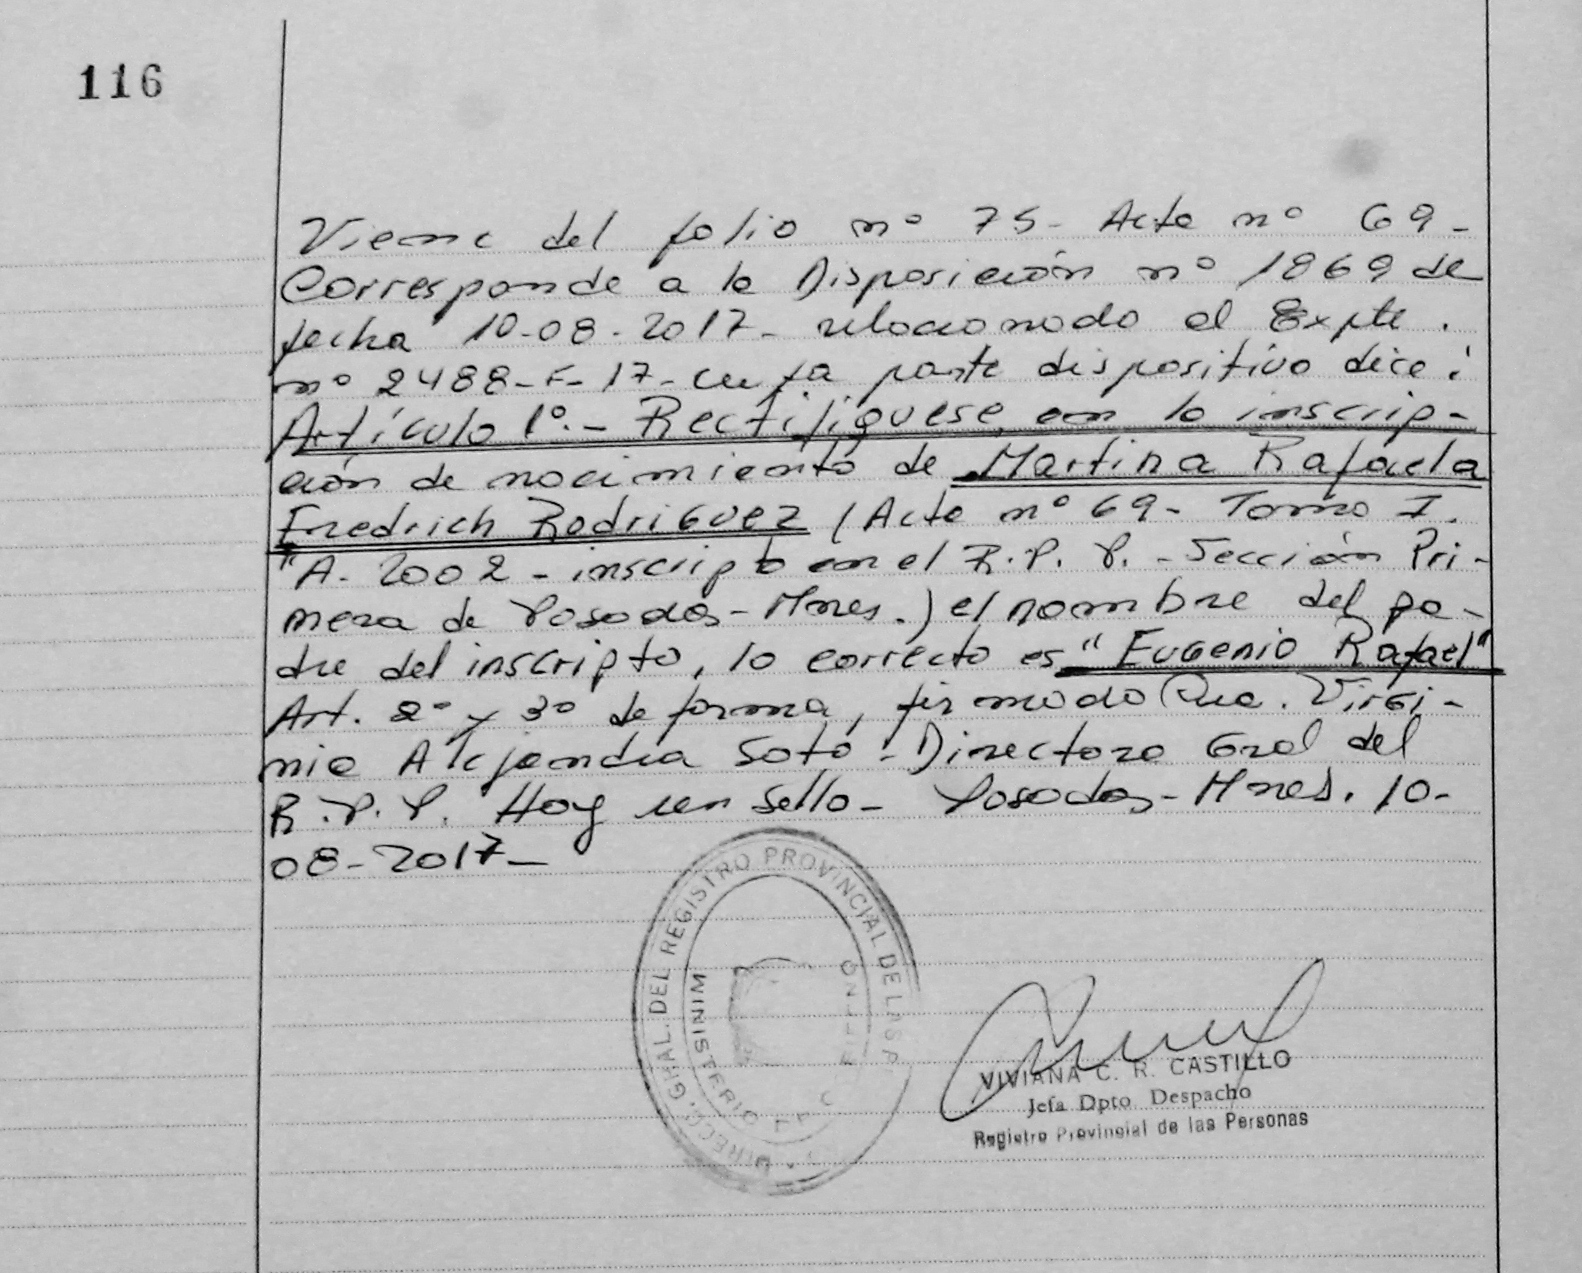 116
Viene del folio nº 75- Acta nº 69-
Corresponde a la Disposición nº 1869 de
fecha 10-08-2017- relacionado al Expte.
nº 2488-F-17- cuya parte dispositiva dice:
Artículo 1º.- Rectifíquese, en la inscrip-
ción de nacimiento de Martina Rafaela
Fredrich Rodriguez (Acta nº 69- Tomo I.
"A- 2002- inscripta en el R.P.P.- Sección Pri-
mera de Posadas- Mnes.) el nombre del pa-
dre del inscripto, lo correcto es "Eugenio Rafael"
Art. 2º y 3º de forma, firmado Dra. Virgi-
nia Alejandra Soto- Directora Gral del
R.P.P. Hay un sello- Posadas- Mnes. 10-
08-2017-
DIRECC. GRAL. DEL REGISTRO PROVINCIAL DE LAS P
MINISTERIO
VIVIANA C. R. CASTILLO
Jefa Dpto Despacho
Registro Provincial de las Personas